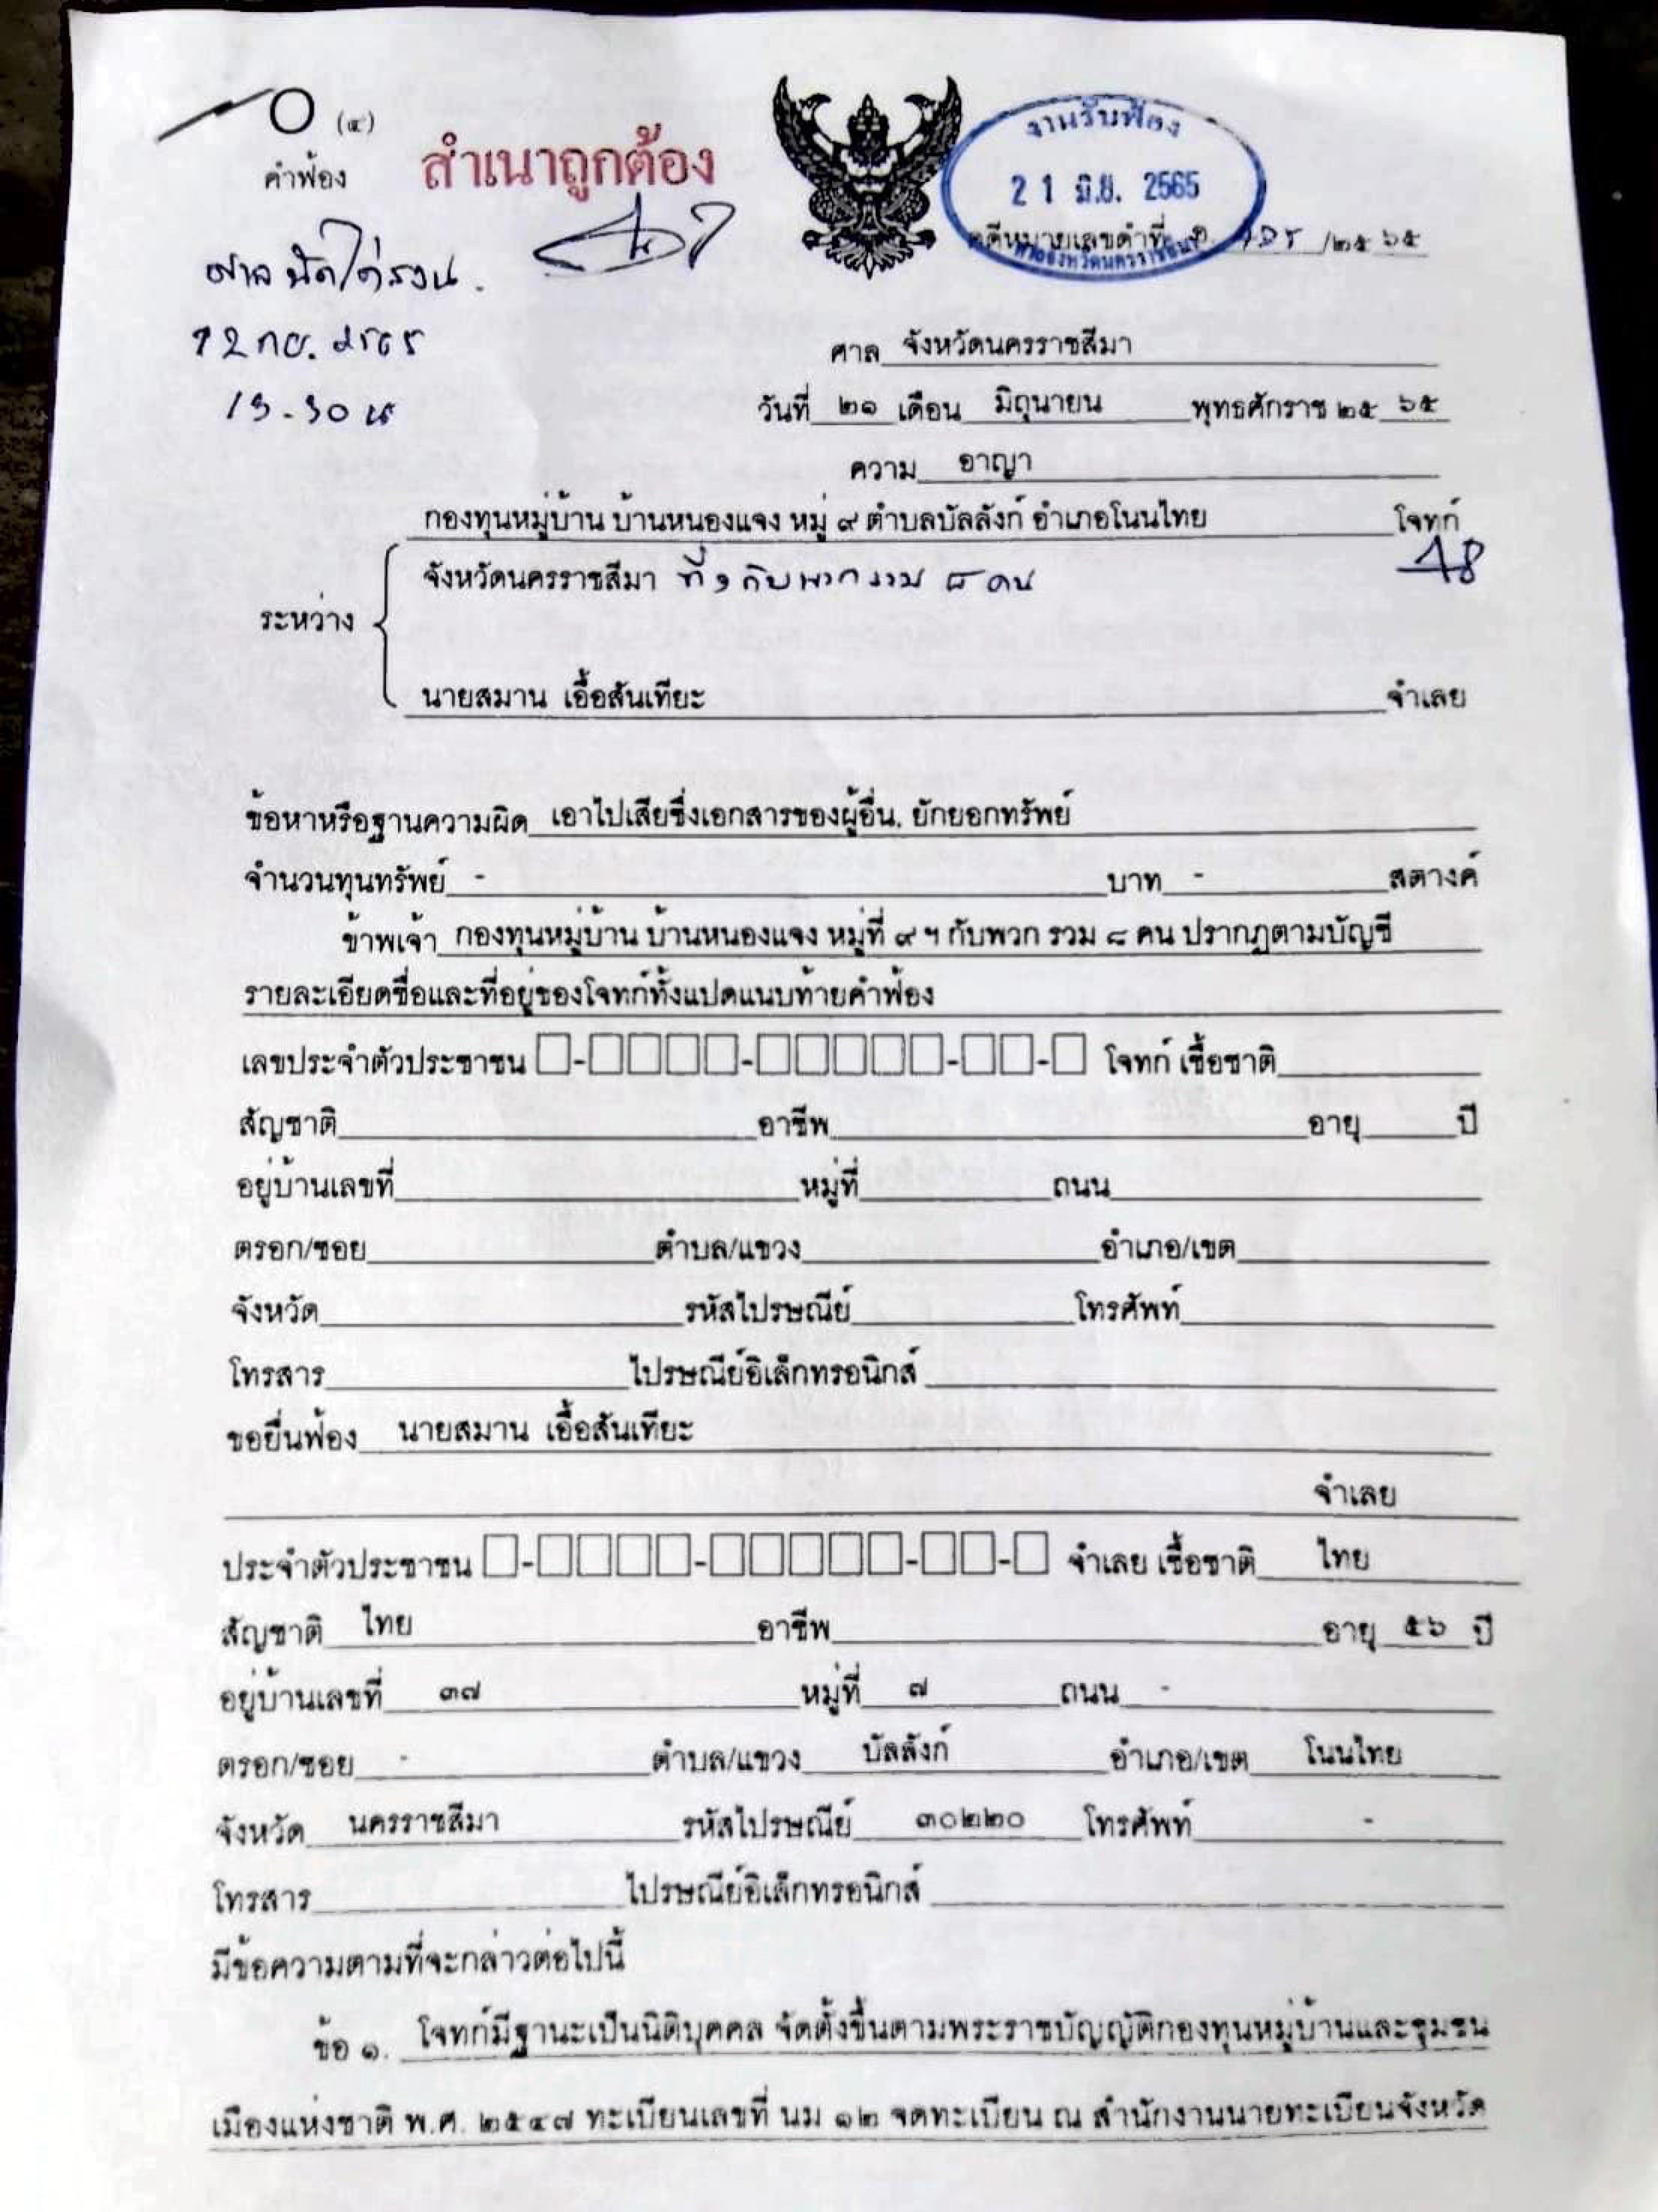 ๐ (๔)
คำฟ้อง
สำเนาถูกต้อง
งานรับฟ้อง
21 มิ.ย. 2565
คดีหมายเลขดำที่ อ. /๒๕ ๖๕
ศาลจังหวัดนครราชสีมา
ศาลนัดไต่สวน.
12 กย. 2565
13.30 น
ศาล จังหวัดนครราชสีมา
วันที่ ๒๑ เดือน มิถุนายน พุทธศักราช ๒๕ ๖๕
ความ อาญา
กองทุนหมู่บ้าน บ้านหนองแจง หมู่ ๙ ตำบลบัลลังก์ อำเภอโนนไทย โจทก์
จังหวัดนครราชสีมา ที่ ๑ กับพวกรวม ๘ คน
ระหว่าง
นายสมาน เอื้อสันเทียะ จำเลย
ข้อหาหรือฐานความผิด เอาไปเสียซึ่งเอกสารของผู้อื่น, ยักยอกทรัพย์
จำนวนทุนทรัพย์ - บาท - สตางค์
ข้าพเจ้า กองทุนหมู่บ้าน บ้านหนองแจง หมู่ที่ ๙ ฯ กับพวก รวม ๘ คน ปรากฏตามบัญชี
รายละเอียดชื่อและที่อยู่ของโจทก์ทั้งแปดแนบท้ายคำฟ้อง
เลขประจำตัวประชาชน โจทก์ เชื้อชาติ
สัญชาติ อาชีพ อายุ ปี
อยู่บ้านเลขที่ หมู่ที่ ถนน
ตรอก/ซอย ตำบล/แขวง อำเภอ/เขต
จังหวัด รหัสไปรษณีย์ โทรศัพท์
โทรสาร ไปรษณีย์อิเล็กทรอนิกส์
ขอยื่นฟ้อง นายสมาน เอื้อสันเทียะ
จำเลย
ประจำตัวประชาชน จำเลย เชื้อชาติ ไทย
สัญชาติ ไทย อาชีพ อายุ ๕๖ ปี
อยู่บ้านเลขที่ ๓๗ หมู่ที่ ๗ ถนน -
ตรอก/ซอย - ตำบล/แขวง บัลลังก์ อำเภอ/เขต โนนไทย
จังหวัด นครราชสีมา รหัสไปรษณีย์ ๓๐๒๒๐ โทรศัพท์ -
โทรสาร ไปรษณีย์อิเล็กทรอนิกส์
มีข้อความตามที่จะกล่าวต่อไปนี้
ข้อ ๑. โจทก์มีฐานะเป็นนิติบุคคล จัดตั้งขึ้นตามพระราชบัญญัติกองทุนหมู่บ้านและชุมชน
เมืองแห่งชาติ พ.ศ. ๒๕๔๗ ทะเบียนเลขที่ นม ๑๒ จดทะเบียน ณ สำนักงานนายทะเบียนจังหวัด